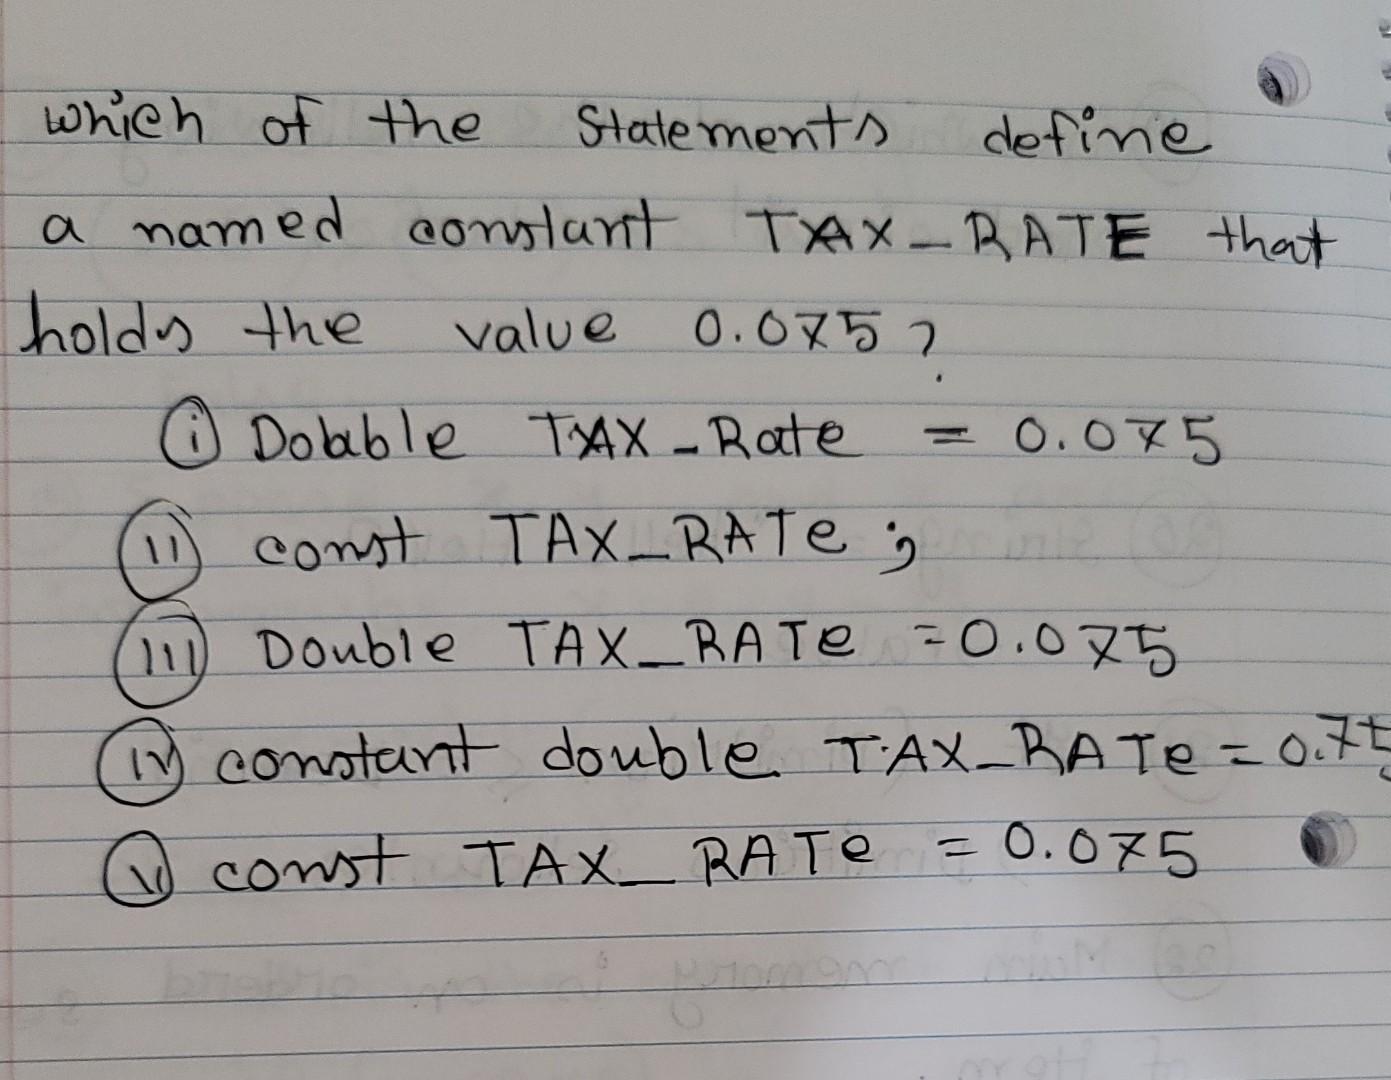 which of the Statements define
a named constant TAX_RATE that
holds the value 0.075?
i Double TAX_Rate = 0.075
ii const TAX_RATe ;
iii Double TAX_RATe = 0.075
iv constant double TAX_RATe = 0.75
v const TAX_RATe = 0.075